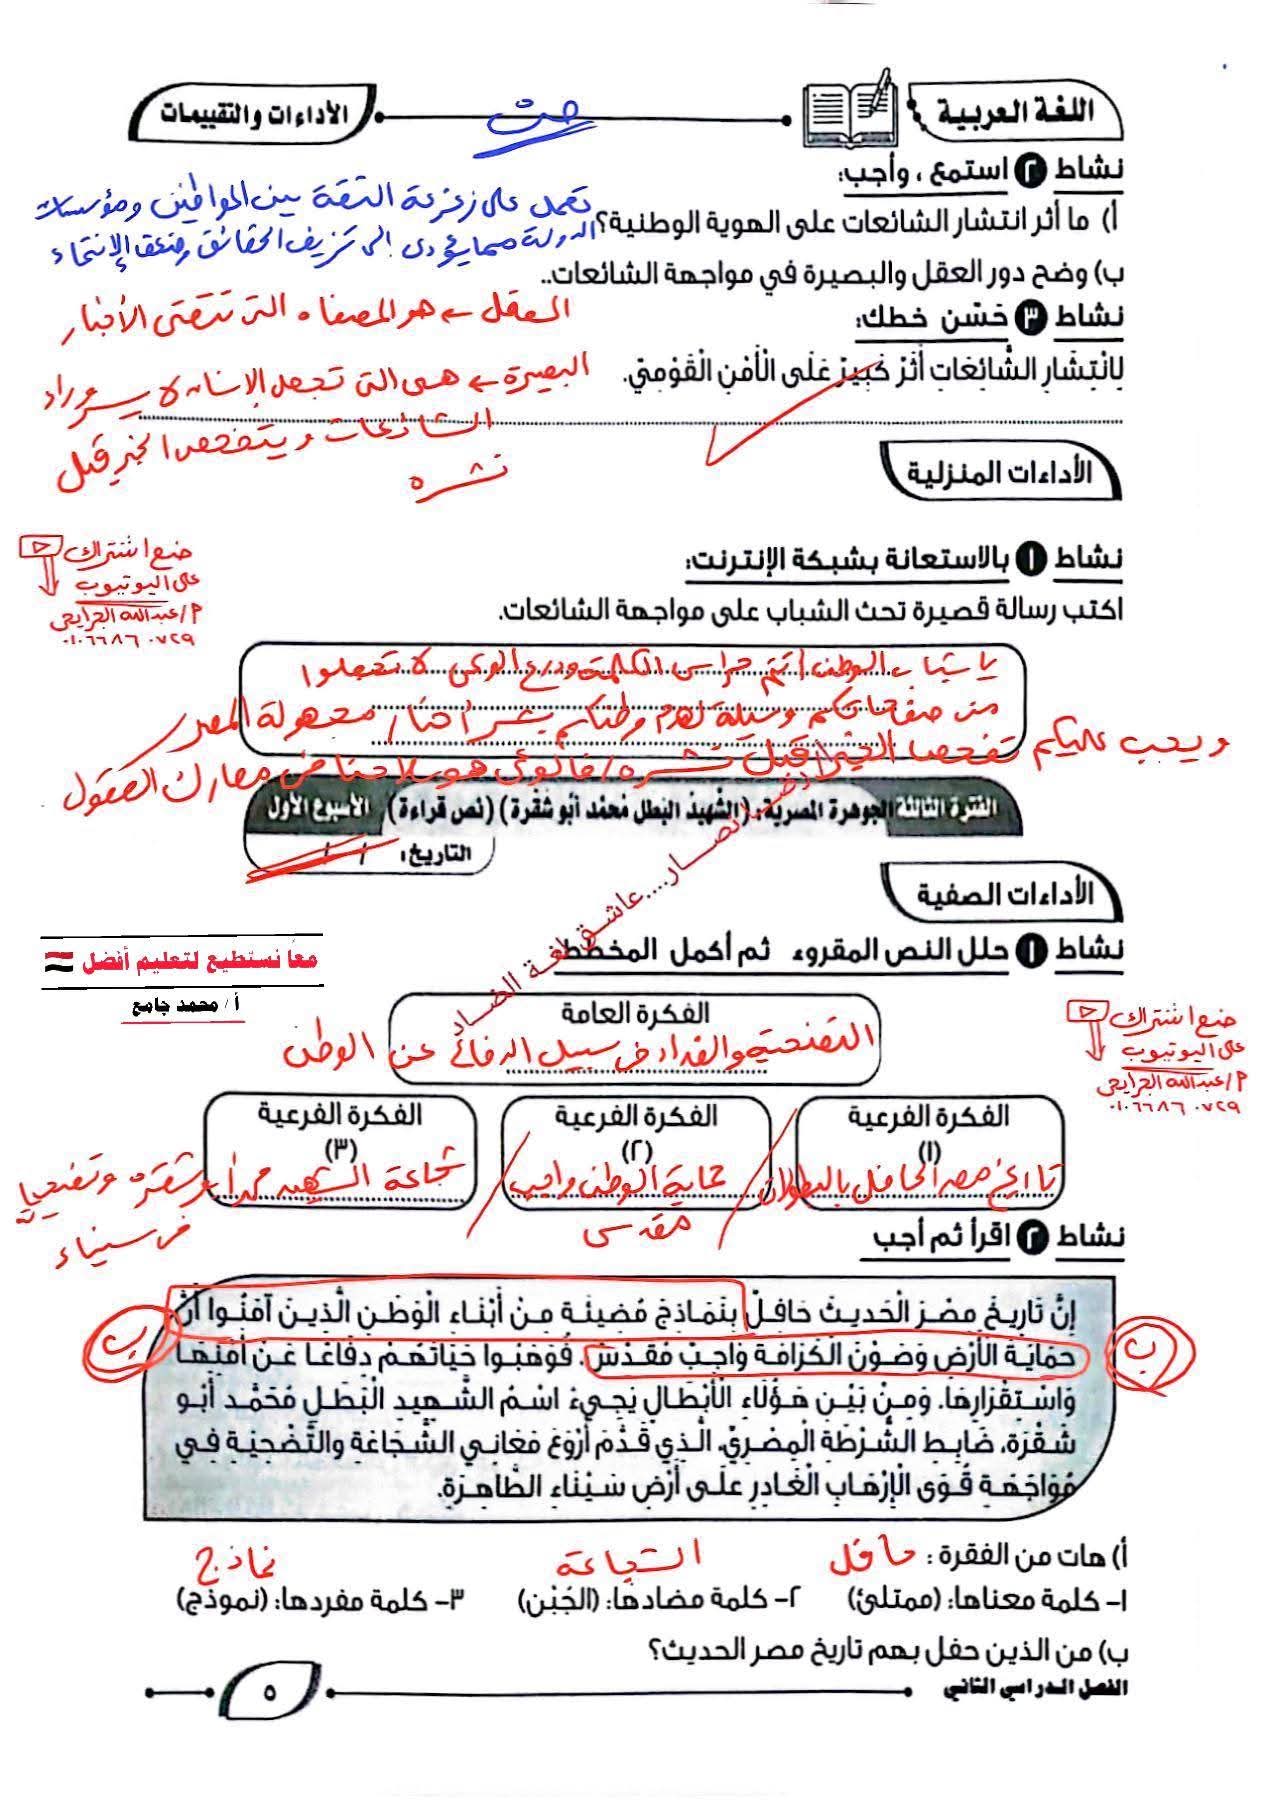 اللغة العربية
الأداءات والتقييمات
نشاط ٢ استمع ، وأجب:
أ) ما أثر انتشار الشائعات على الهوية الوطنية؟
تعمل على زعزعة الثقة بين المواطنين ومؤسسات
الدولة مما يؤدى إلى تزييف الحقائق وضعف الإنتماء
ب) وضح دور العقل والبصيرة في مواجهة الشائعات..
العقل ← هو المصفاه التى تنقى الأخبار
نشاط ٣ حَسّن خطك:
البصيرة ← هى التى تجعل الإنسان لا يسرع وراء
الشائعات ويتفحص الخبر قبل
نشره
لِانْتِشَارِ الشَّائِعَاتِ أَثَرٌ كَبِيرٌ عَلَى الْأَمْنِ الْقَوْمِيِّ.
الأداءات المنزلية
نشاط ١ بالاستعانة بشبكة الإنترنت:
اكتب رسالة قصيرة تحث الشباب على مواجهة الشائعات.
ضع اشتراك
على اليوتيوب
م/عبدالله الجرايحى
٠١٠٦٦٨٦٠٧٢٩
يا شباب الوطن أنتم حراس الكلمة ودرع الوعى لا تجعلوا
من صفحاتكم وسيلة لهدم وطنكم بنشر أخبار مجهولة المصدر
ويجب عليكم تفحص الخبر قبل نشره / فالوعى هو سلاحنا فى معارك العقول
الفقرة الثالثة الجوهرة المصرية: (الشَّهِيدُ البَطل مُحَمَّد أبو شُقْرة) (نص قراءة) الأسبوع الأول
التاريخ: / /
الأداءات الصفية
نشاط ١ حلل النص المقروء ثم أكمل المخطط
....عاشق لغة الضاد
معا نستطيع لتعليم أفضل
أ / محمد جامع
الفكرة العامة
التضحية والفداء فى سبيل الدفاع عن الوطن
ضع اشتراك
على اليوتيوب
م/عبدالله الجرايحى
٠١٠٦٦٨٦٠٧٢٩
الفكرة الفرعية
(١)
تاريخ مصر الحافل بالبطولات
الفكرة الفرعية
(٢)
حماية الوطن واجب
مقدس
الفكرة الفرعية
(٣)
شجاعة الشهيد محمد أبو شقرة وتضحياته
فى سيناء
نشاط ٢ اقرأ ثم أجب
إِنَّ تَارِيخَ مِصْرَ الْحَدِيثَ حَافِلٌ بِنَمَاذِجَ مُضِيئَةٍ مِنْ أَبْنَاءِ الْوَطَنِ الَّذِينَ آمَنُوا أَنَّ
حِمَايَةَ الْأَرْضِ وَصَوْنَ الْكَرَامَةِ وَاجِبٌ مُقَدَّسٌ. فَوَهَبُوا حَيَاتَهُمْ دِفَاعًا عَنْ أَمْنِهَا
وَاسْتِقْرَارِهَا. وَمِنْ بَيْنِ هَؤُلَاءِ الْأَبْطَالِ يَجِيءُ اسْمُ الشَّهِيدِ الْبَطَلِ مُحَمَّد أَبُو
شُقْرَة، ضَابِطِ الشُّرْطَةِ الْمِصْرِيِّ، الَّذِي قَدَّمَ أَرْوَعَ مَعَانِي الشَّجَاعَةِ وَالتَّضْحِيَةِ فِي
مُوَاجَهَةِ قُوَى الْإِرْهَابِ الْغَادِرِ عَلَى أَرْضِ سَيْنَاءِ الطَّاهِرَةِ.
ب
ب
أ) هات من الفقرة :
حافل
الشجاعة
نماذج
١- كلمة معناها: (ممتلئ) ٢- كلمة مضادها: (الجُبْن) ٣- كلمة مفردها: (نموذج)
ب) من الذين حفل بهم تاريخ مصر الحديث؟
الفصل الدراسي الثاني
٥